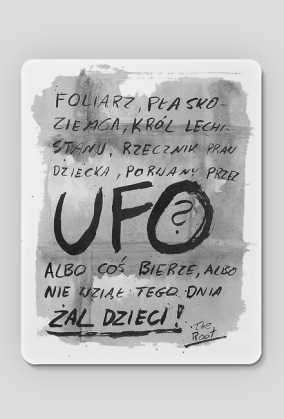 FOLIARZ, PŁASKO-
ZIEMCA, KRÓL LECHI-
STANU, RZECZNIK PRAW
DZIECKA, PORWANY PRZEZ
UFO?
ALBO COŚ BIERZE, ALBO
NIE WZIĄŁ TEGO DNIA
ŻAL DZIECI!
The
Root